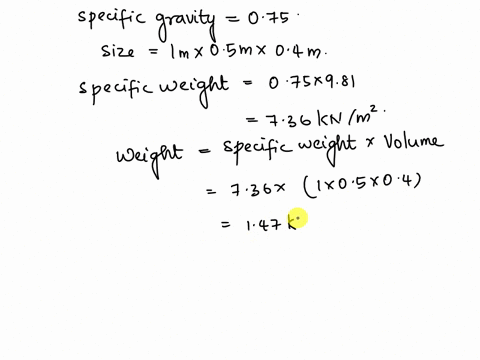 specific gravity = 0.75.
size = 1m x 0.5m x 0.4m.
specific weight = 0.75x9.81
= 7.36 kN/m².
weight = specific weight x Volume
= 7.36x (1x0.5x0.4)
= 1.47 k